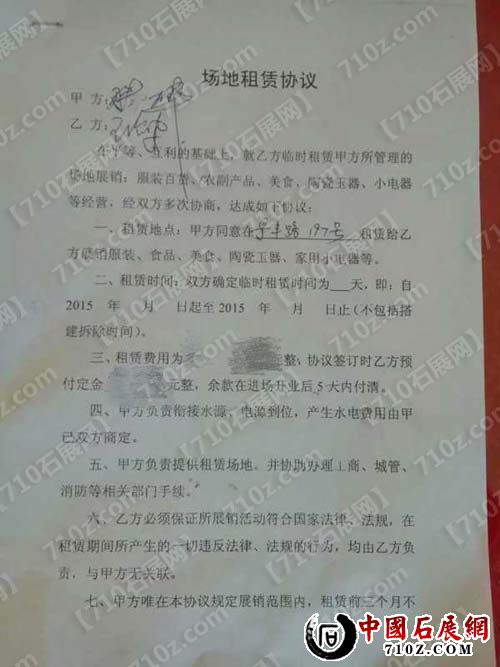 场地租赁协议
甲方:
乙方:
在平等、互利的基础上，就乙方临时租赁甲方所管理的
场地展销：服装百货、农副产品、美食、陶瓷玉器、小电器
等经营，经双方多次协商，达成如下协议：
一、租赁地点：甲方同意在 路197号 租赁给乙
方展销服装、食品、美食、陶瓷玉器、家用小电器等。
二、租赁时间：双方确定临时租赁时间为___天，即：自
2015 年 月 日起至2015 年 月 日止(不包括搭
建拆除时间)。
三、租赁费用为 整；协议签订时乙方预
付定金 元整，余款在进场开业后5天内付清。
四、甲方负责衔接水源、电源到位，产生水电费用由甲
已双方商定。
五、甲方负责提供租赁场地。并协助办理工商、城管、
消防等相关部门手续。
六、乙方必须保证所展销活动符合国家法律、法规，在
租赁期间所产生的一切违反法律、法规的行为，均由乙方负
责，与甲方无关联。
七、甲方唯在本协议规定展销范围内，租赁前三个月不
【710石展网】
710z.com
中國石展網
www.710z.com